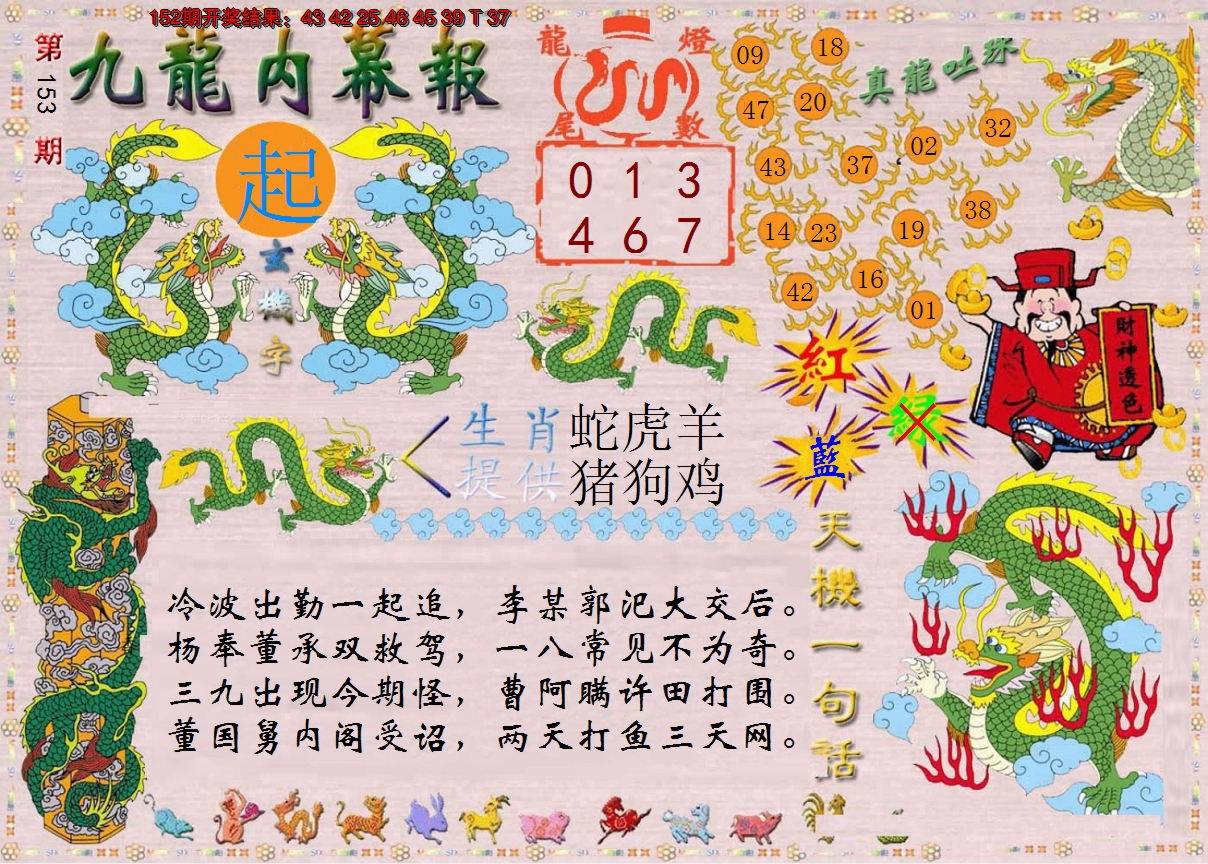 152期开奖结果：43 42 25 46 45 39 T 37
第153期
九龍内幕報
起
玄機字
龍燈
尾數
0 1 3
4 6 7
真龍吐珠
09
18
47
20
43
37
02
32
14
23
19
38
42
16
01
紅
绿
藍
財神透色
生肖提供
蛇虎羊
猪狗鸡
冷波出勤一起追，李某郭汜大交后。
杨奉董承双救驾，一八常见不为奇。
三九出现今期怪，曹阿瞒许田打围。
董国舅内阁受诏，两天打鱼三天网。
天機一句话